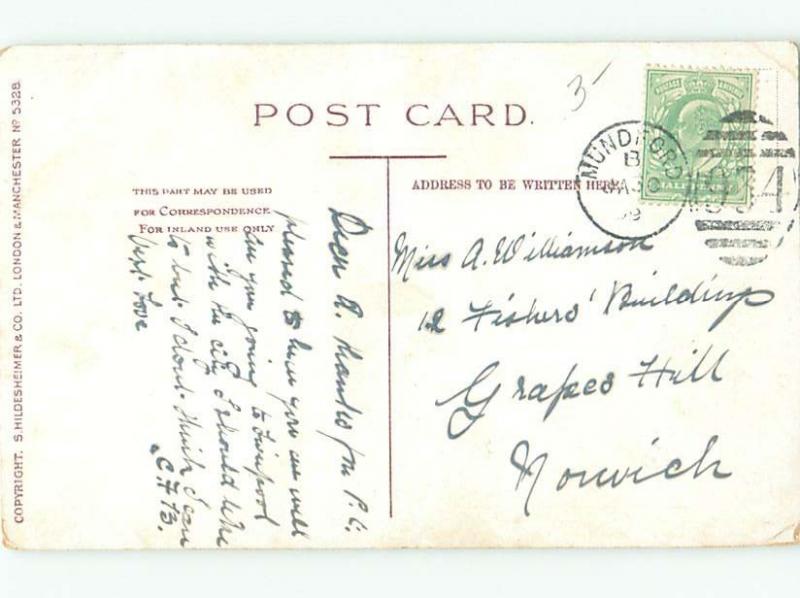 COPYRIGHT. S. HILDESHEIMER & CO. LTD. LONDON & MANCHESTER Nº 5328.
POST CARD.
3-
THIS PART MAY BE USED
FOR CORRESPONDENCE
FOR INLAND USE ONLY
ADDRESS TO BE WRITTEN HERE
POSTAGE REVENUE
HALFPENNY
MUNDFORD
B
JA 30
09
Miss A. Williamson
12 Fishers' Buildings
Grapes Hill
Norwich
Dear A. thanks for P.C.
pleased to hear you are well
are you going to Liverpool
with the city I should like
to but I dont think I can
love
C.F.B.